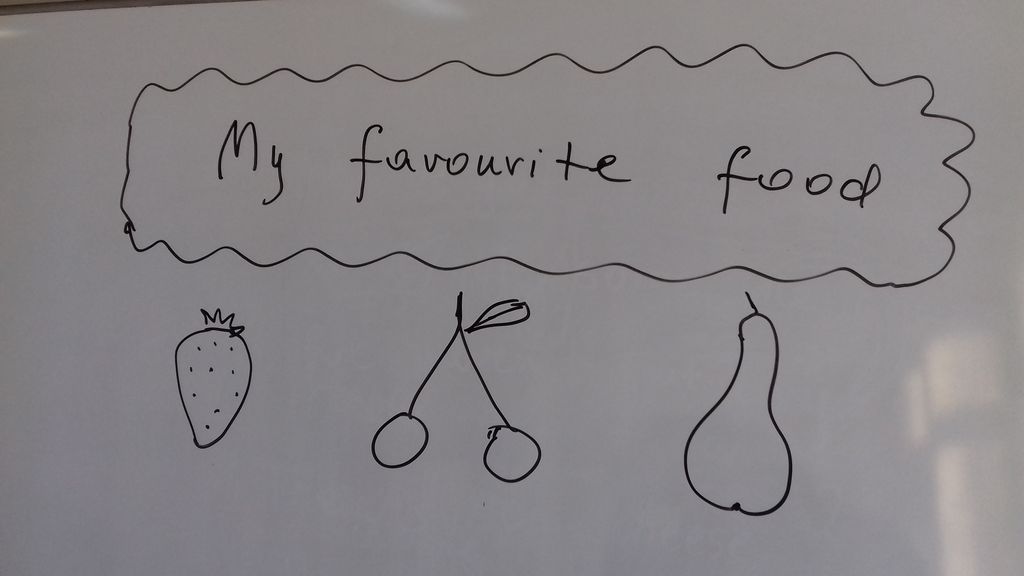 My favourite food